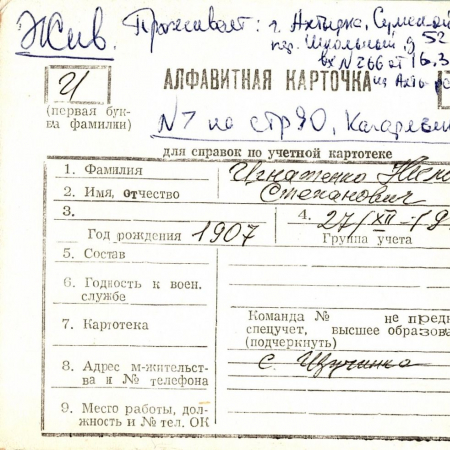 Жив. Проживает: г. Ахтырка, Сумской
пер. Школьный д 52
вх N 266 от 16.3
И
АЛФАВИТНАЯ КАРТОЧКА
из Ахты
(первая бук-
ва фамилии)
N 7 по стр 90,
для справок по учетной картотеке
1. Фамилия Игнатенко
2. Имя, отчество Степанович
3.
Год рождения 1907
4. 27/XII-
Группа учета
5. Состав
6. Годность к воен.
службе
7. Картотека
Команда № не предн
спецучет, высшее образова
(подчеркнуть)
8. Адрес м-жительст-
ва и № телефона
с.
9. Место работы, дол-
жность и № тел. ОК